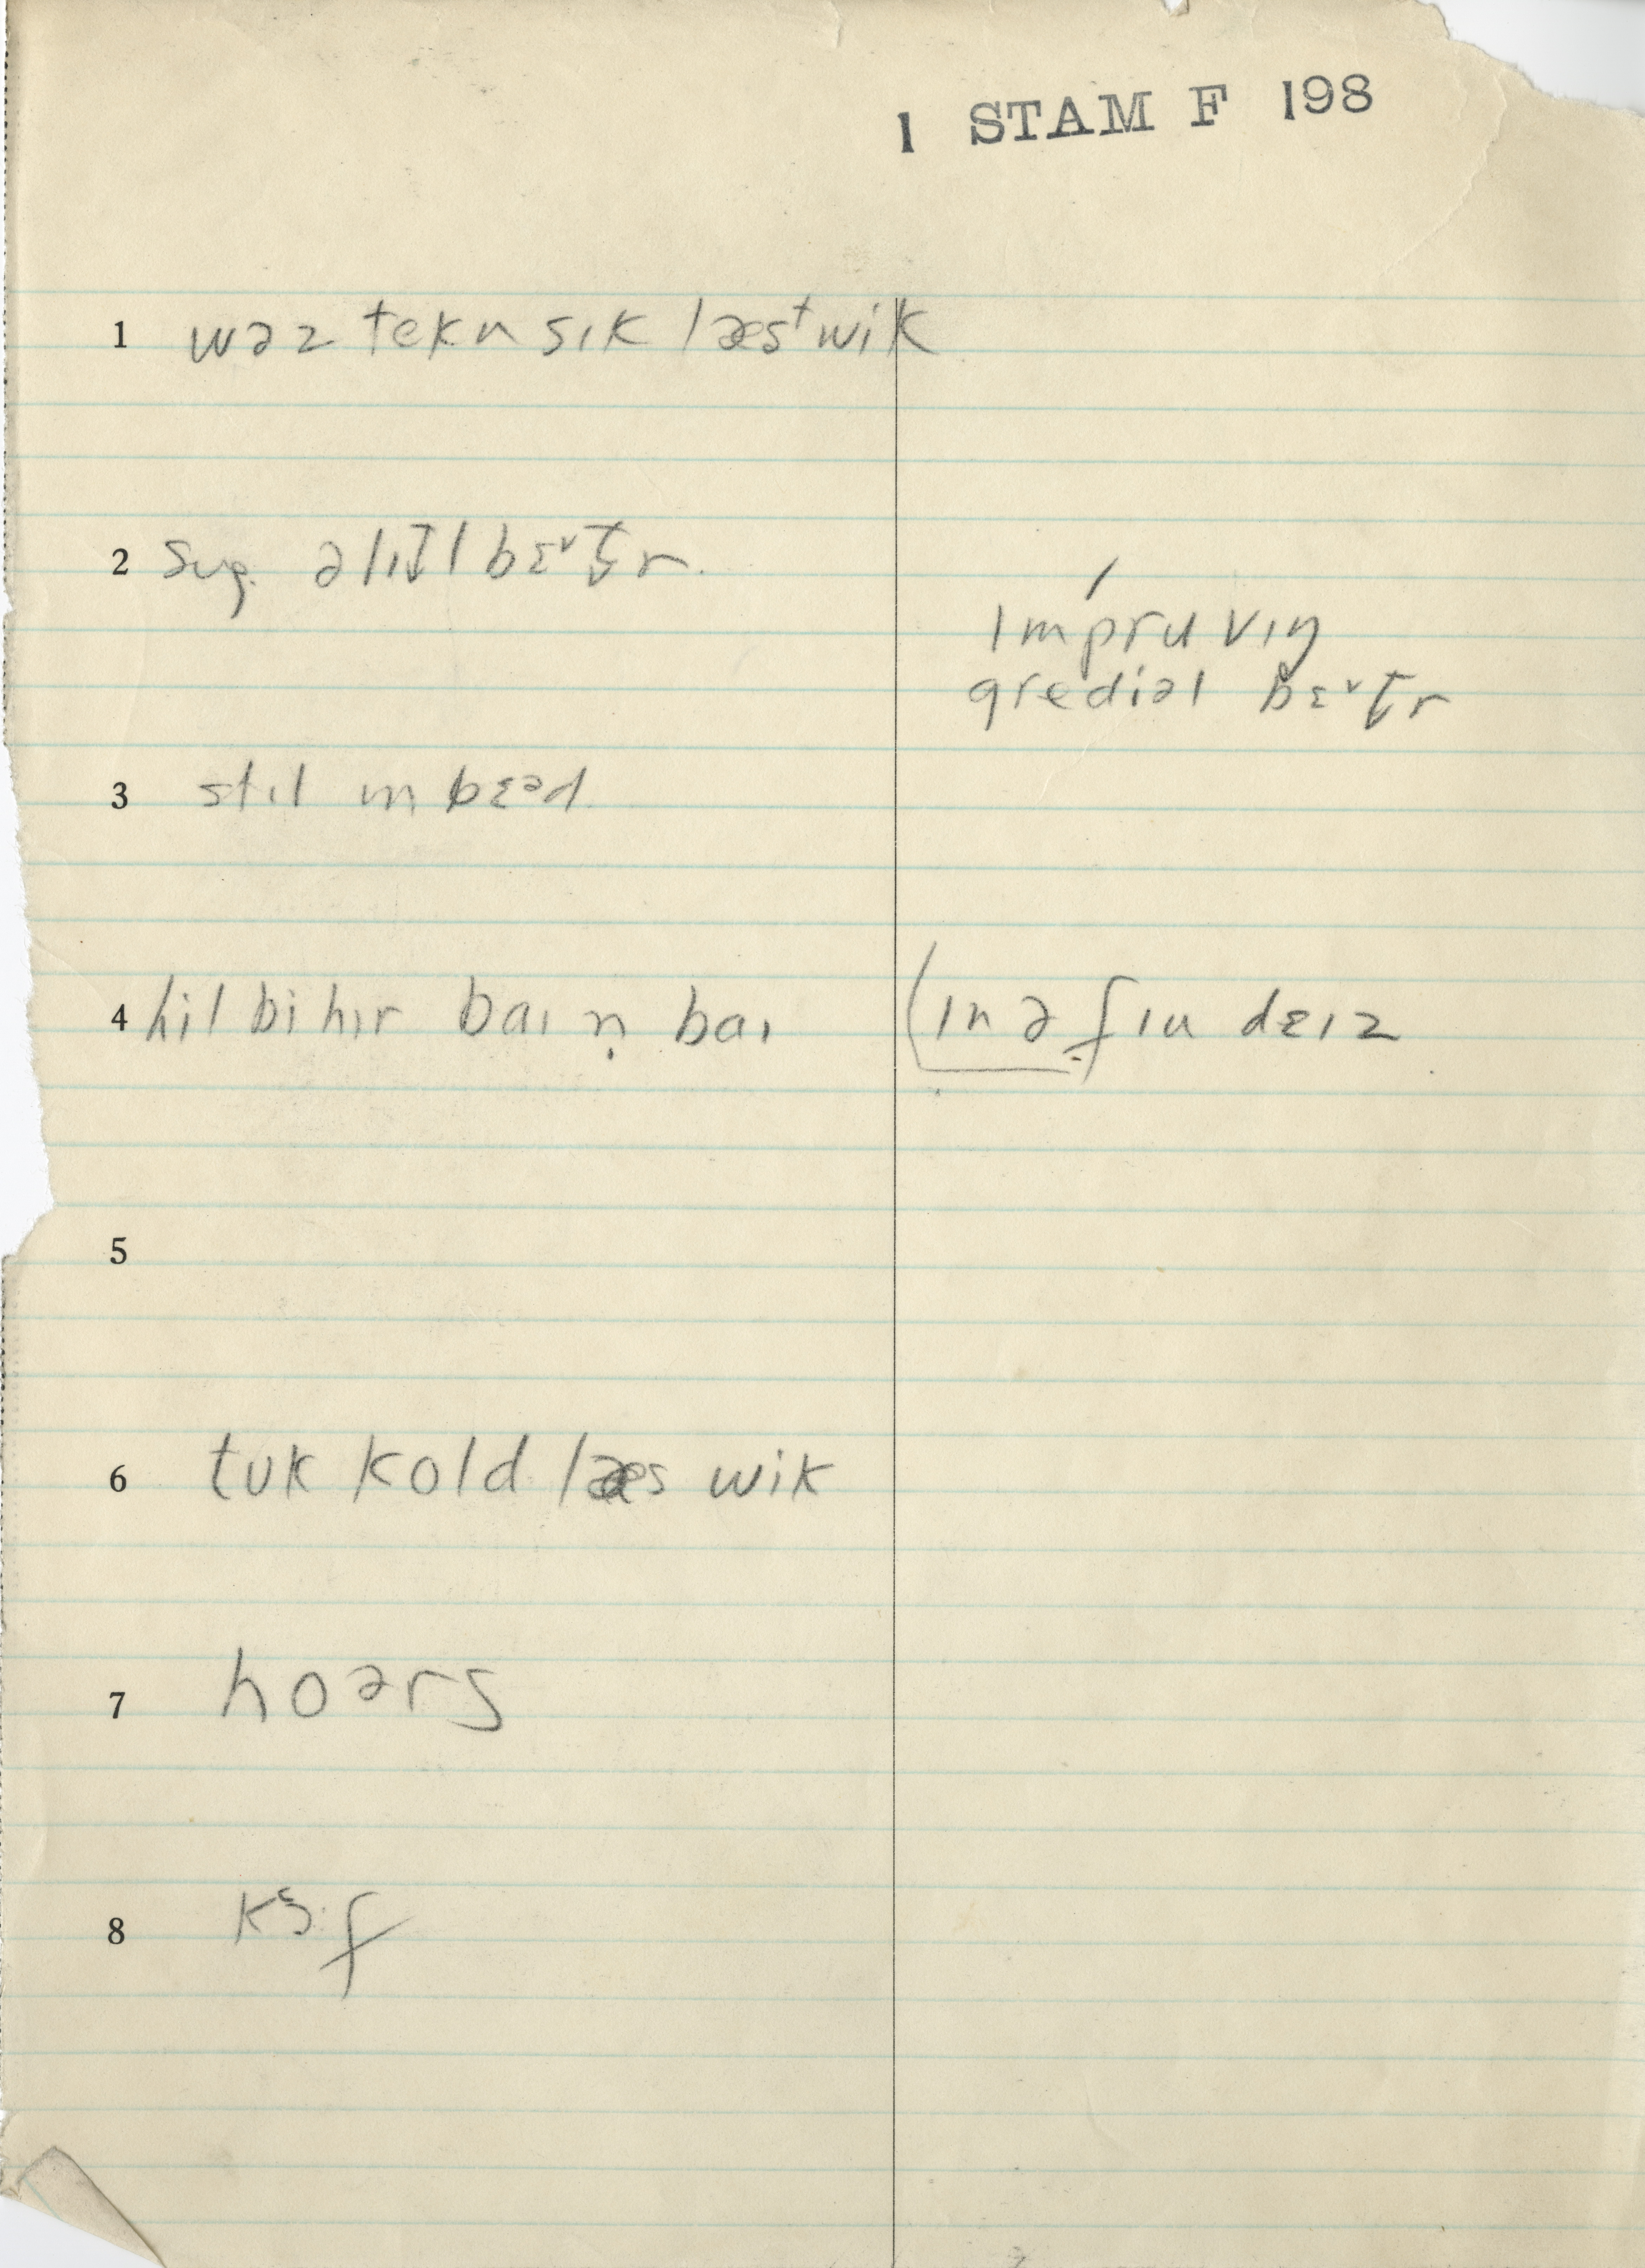 1 STAM F 198
1 wəz tekn sɪk læsᵗ wik
2 sug. ə lɪt̬l bɛᵛt̬r.
ɪmpruvɪŋ
gredɪəl bɛᵛt̬r
3 stɪl ɪn bɛᵊd.
4 hil bi hɪr baɪ ṇ baɪ (ɪn ə fɪu dɛɪz
5
6 tʊk kold læs wik
7 hoərs
8 kɔf